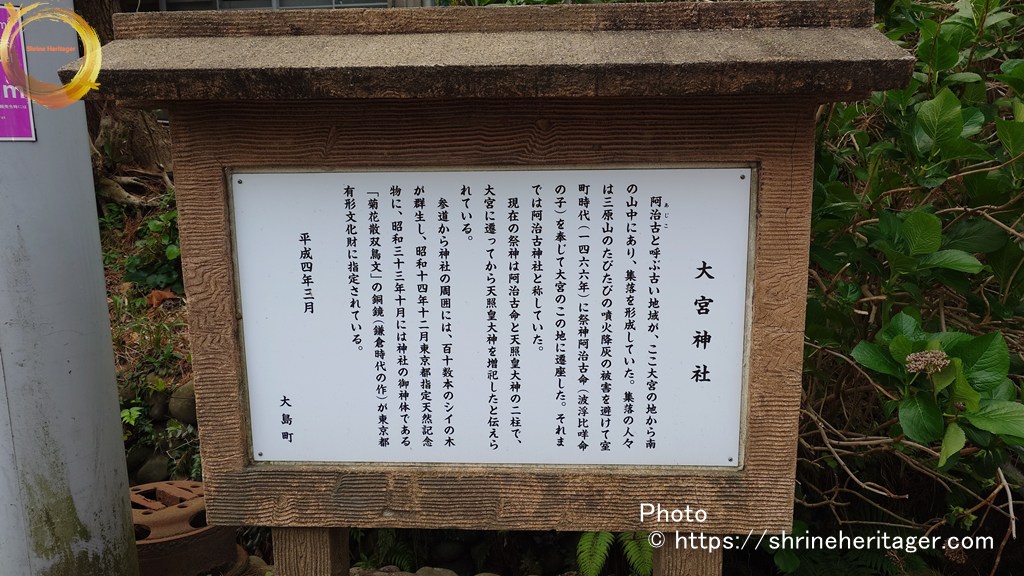 大宮神社
阿治古と呼ぶ古い地域が、ここ大宮の地から南
あじこ
の山中にあり、集落を形成していた。集落の人々
は三原山のたびたびの噴火降灰の被害を避けて室
町時代（一四六六年）に祭神阿治古命（波浮比咩命
の子）を奉じて大宮のこの地に遷座した。それま
では阿治古神社と称していた。
現在の祭神は阿治古命と天照皇大神の二柱で、
大宮に遷ってから天照皇大神を増祀したと伝えら
れている。
参道から神社の周囲には、百十数本のシイの木
が群生し、昭和十四年十二月東京都指定天然記念
物に、昭和三十三年十月には神社の御神体である
「菊花散双鳥文」の銅鏡（鎌倉時代の作）が東京都
有形文化財に指定されている。
平成四年三月
大島町
Shrine Heritager
m
Photo
© https://shrineheritager.com/